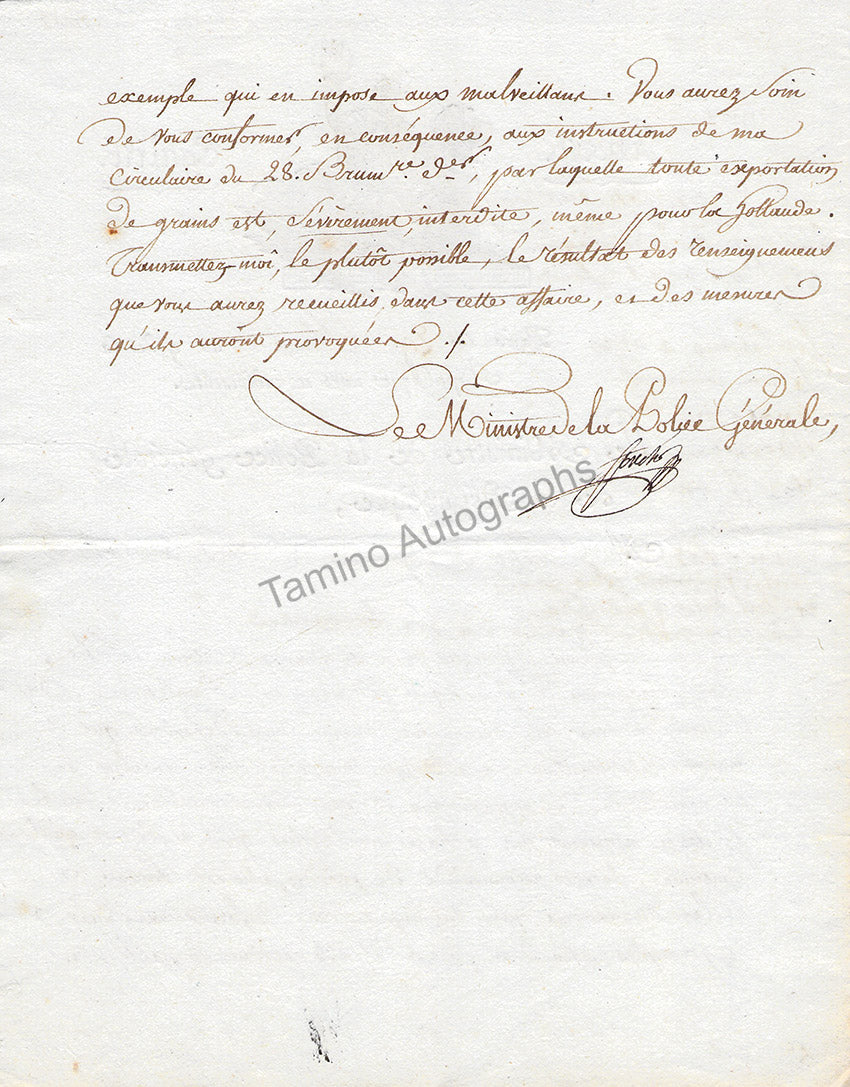 exemple qui en impose aux malveillans. Vous aurez soin
de vous conformer, en conséquence, aux instructions de ma
Circulaire du 28. Brum.re der, par laquelle toute exportation
de grains est, sévèrement, interdite, même pour la Hollande.
Transmettez-moi, le plutôt possible, le résultat des renseignemens
que vous aurez recueillis dans cette affaire, et des mesures
qu'ils auront provoquées ./.
Le Ministre de la Police Générale,
Fouché
Tamino Autographs